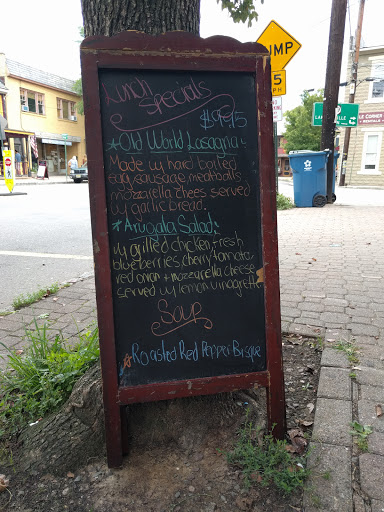 Lunch
Specials
$9.95
*Old World Lasagna:
Made w/ hard boiled
egg, sausage, meatballs
mozzarella chees served
w/ garlic bread.
*Arugala Salad:
w/ grilled chicken, fresh
blueberries, cherry tomato,
red onion + mozzarella cheese
served w/ lemon vinagrette
Soup
*Roasted Red Pepper Bisque
UMP
5
MPH
LE CORNER